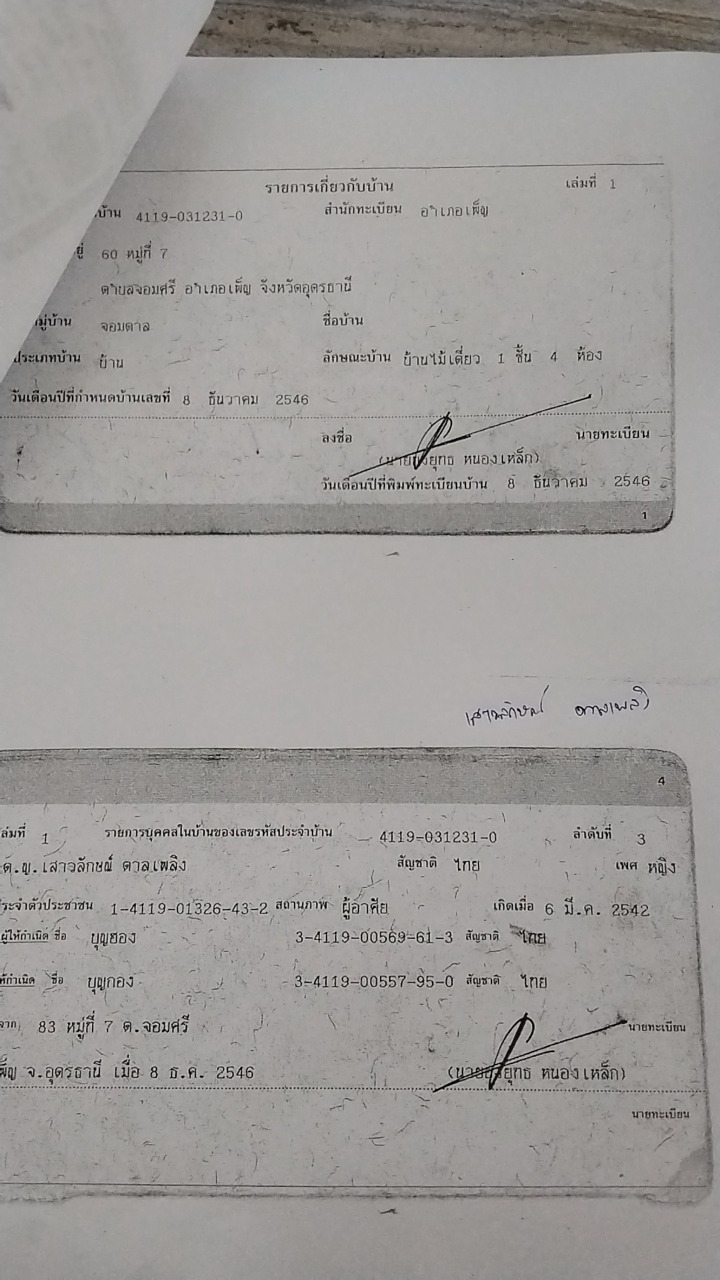 รายการเกี่ยวกับบ้าน เล่มที่ 1
บ้าน 4119-031231-0 สำนักทะเบียน อำเภอเพ็ญ
60 หมู่ที่ 7
ตำบลจอมศรี อำเภอเพ็ญ จังหวัดอุดรธานี
หมู่บ้าน จอมตาล ชื่อบ้าน
ประเภทบ้าน บ้าน ลักษณะบ้าน บ้านไม้เดี่ยว 1 ชั้น 4 ห้อง
วันเดือนปีที่กำหนดบ้านเลขที่ 8 ธันวาคม 2546
ลงชื่อ นายทะเบียน
หนองเหล็ก)
วันเดือนปีที่พิมพ์ทะเบียนบ้าน 8 ธันวาคม 2546
1
เสาวลักษณ์ ตาลเพลิง
4
เล่มที่ 1 รายการบุคคลในบ้านของเลขรหัสประจำบ้าน 4119-031231-0 ลำดับที่ 3
ด.ญ.เสาวลักษณ์ ตาลเพลิง สัญชาติ ไทย เพศ หญิง
ประจำตัวประชาชน 1-4119-01326-43-2 สถานภาพ ผู้อาศัย เกิดเมื่อ 6 มี.ค. 2542
ผู้ให้กำเนิด ชื่อ บุญฮอง 3-4119-00569-61-3 สัญชาติ ไทย
ให้กำเนิด ชื่อ บุญกอง 3-4119-00557-95-0 สัญชาติ ไทย
จาก 83 หมู่ที่ 7 ต.จอมศรี นายทะเบียน
เพ็ญ จ.อุดรธานี เมื่อ 8 ธ.ค. 2546 หนองเหล็ก)
นายทะเบียน